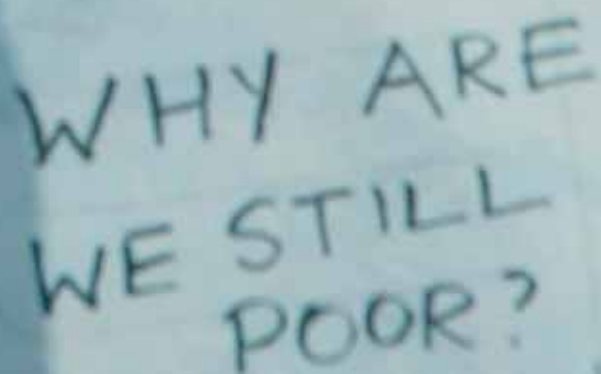 WHY ARE
WE STILL
POOR?